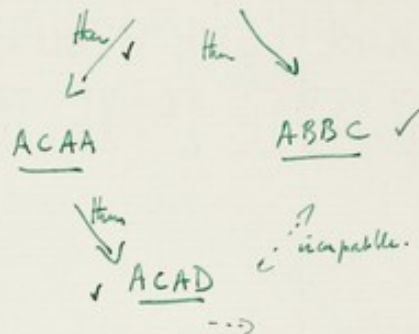 Ham ✓ Ham
ACAA ABBC ✓
Ham ✓
incapable.
✓ ACAD